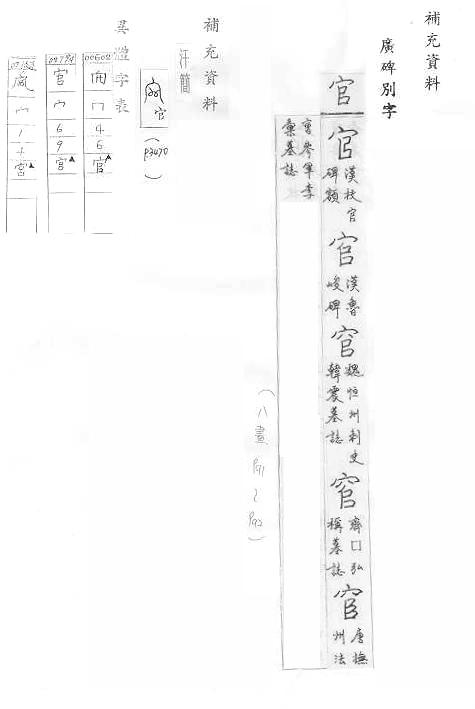 補充資料
廣碑別字
官
官 漢校官碑額
官 漢魯峻碑
官 魏恒州刺史韓震墓誌
官 齊□弘稱墓誌
官 唐撫州法
曹參軍李彙墓誌
(八畫 P91~P92)
補充資料
汗簡
官
(P3470)
異體字表
00602
冂
4
6
官▲
官
宀
6
9
官▲
宀
1
4
官▲